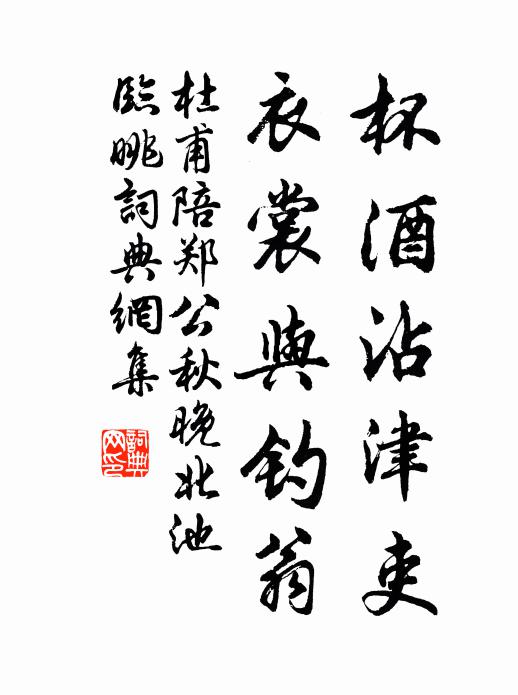 杯酒沾津吏
衣裳與钓翁
杜甫陪郑公秋晚北池
臨眺詞典網集
詞典
网印